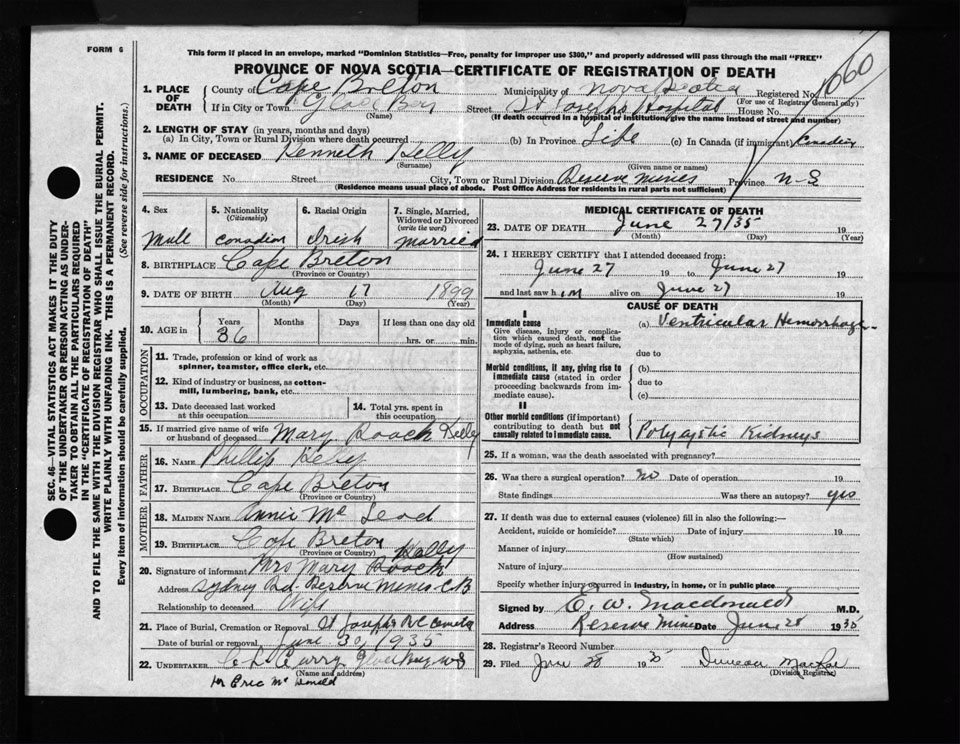 FORM 6
This form if placed in an envelope, marked "Dominion Statistics—Free, penalty for improper use $300," and properly addressed will pass through the mail "FREE"
PROVINCE OF NOVA SCOTIA—CERTIFICATE OF REGISTRATION OF DEATH
1. PLACE OF DEATH
County of Cape Breton Municipality of Nova Scotia Registered No. 1060
(For use of Registrar General only)
If in City or Town Glace Bay Street St Josephs Hospital House No.
(Name)
(If death occurred in a hospital or institution, give the name instead of street and number)
2. LENGTH OF STAY (in years, months and days)
(a) In City, Town or Rural Division where death occurred (b) In Province Life (c) In Canada (if immigrant) Canadian
3. NAME OF DECEASED Kenneth Kelly
(Surname) (Given name or names)
RESIDENCE No. Street City, Town or Rural Division Reserve Mines Province N-S
(Residence means usual place of abode. Post Office Address for residents in rural parts not sufficient)
4. Sex
Male
5. Nationality
(Citizenship)
Canadian
6. Racial Origin
Irish
7. Single, Married, Widowed or Divorced
(write the word)
Married
8. BIRTHPLACE Cape Breton
(Province or Country)
9. DATE OF BIRTH Aug 17 1899
(Month) (Day) (Year)
10. AGE in Years Months Days If less than one day old
36 hrs. or min.
OCCUPATION
11. Trade, profession or kind of work as spinner, teamster, office clerk, etc.
12. Kind of industry or business, as cotton-mill, lumbering, bank, etc.
13. Date deceased last worked at this occupation
14. Total yrs. spent in this occupation
15. If married give name of wife or husband of deceased Mary Roach Kelly
FATHER
16. NAME Phillip Kelly
17. BIRTHPLACE Cape Breton
(Province or Country)
MOTHER
18. MAIDEN NAME Annie Mc Leod
19. BIRTHPLACE Cape Breton
(Province or Country)
20. Signature of informant Mrs Mary Roach Kelly
Address Sydney Rd. Reserve Mines C B
Relationship to deceased Wife
21. Place of Burial, Cremation or Removal St Josephs RC
Date of burial or removal June 30, 1935
22. UNDERTAKER Curry Glace Bay NS
(Name and address)
Eric Mc Donald
MEDICAL CERTIFICATE OF DEATH
23. DATE OF DEATH June 27/35 19
(Month) (Day) (Year)
24. I HEREBY CERTIFY that I attended deceased from:
June 27 19 to June 27 19
and last saw him alive on June 27 19
CAUSE OF DEATH
I
Immediate cause
Give disease, injury or complication which caused death, not the mode of dying, such as heart failure, asphyxia, asthenia, etc.
(a) Ventricular Hemorrhage
due to
Morbid conditions, if any, giving rise to immediate cause (stated in order proceeding backwards from immediate cause).
(b)
due to
(c)
II
Other morbid conditions (if important) contributing to death but not causally related to immediate cause.
Polycystic Kidneys
25. If a woman, was the death associated with pregnancy?
26. Was there a surgical operation? no Date of operation 19
State findings Was there an autopsy? yes
27. If death was due to external causes (violence) fill in also the following:—
Accident, suicide or homicide? Date of injury 19
(State which)
Manner of injury
(How sustained)
Nature of injury
Specify whether injury occurred in industry, in home, or in public place
Signed by E. W. Macdonald M.D.
Address Reserve Mines Date June 28 1935
28. Registrar's Record Number
29. Filed June 28 1935 Duncan MacRae
(Division Registrar)
SEC. 46—VITAL STATISTICS ACT MAKES IT THE DUTY
OF THE UNDERTAKER OR PERSON ACTING AS UNDER-
TAKER TO OBTAIN ALL THE PARTICULARS REQUIRED
IN THE "CERTIFICATE OF REGISTRATION OF DEATH"
AND TO FILE THE SAME WITH THE DIVISION REGISTRAR WHO SHALL ISSUE THE BURIAL PERMIT.
WRITE PLAINLY WITH UNFADING INK. THIS IS A PERMANENT RECORD.
Every item of information should be carefully supplied. (See reverse side for instructions.)